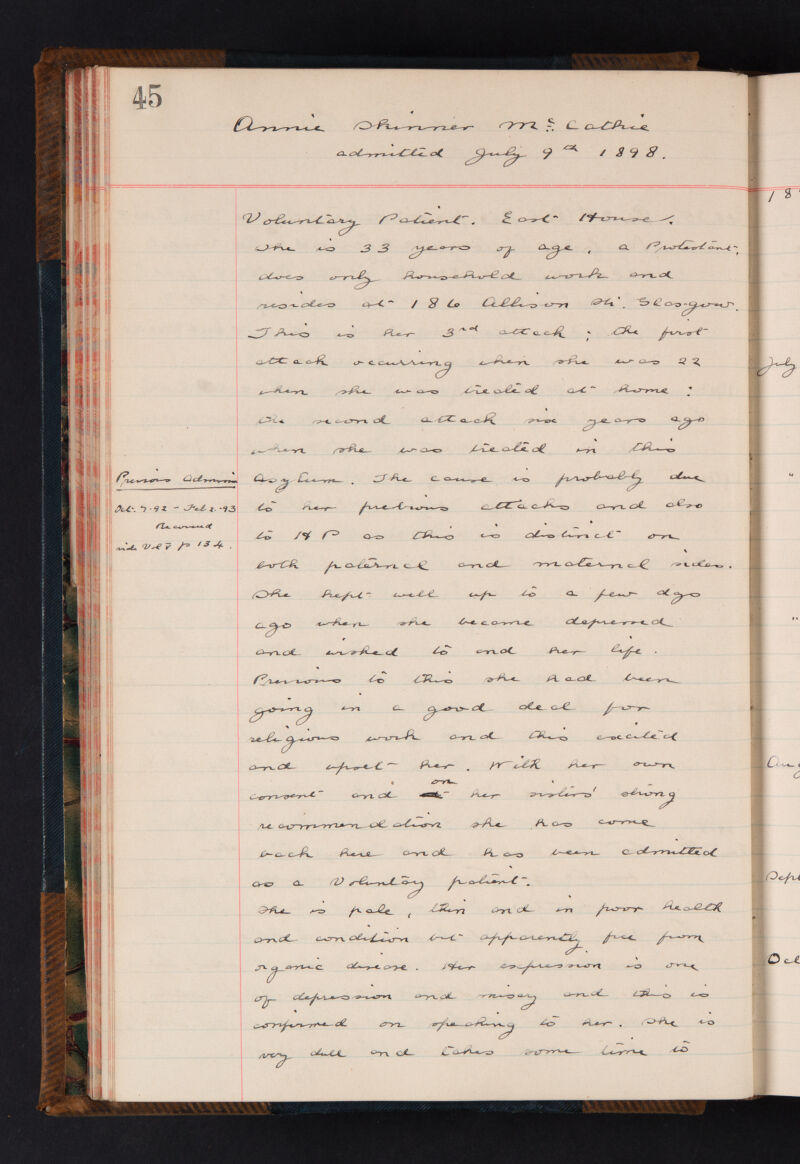 45
Annie Skinner Mc. Cathie
admitted July 9th 1898.
Voluntary Patient. East House.
She is 33 years of age, a Protestant,
does only household work and
resides at 186 Allison St. Glasgow.
This is her 3rd attack; the first
attack occurring when she was 22
when she was treated at home:
the second attack six years ago
when she was treated in this
Asylum. The cause is probably due
to her previous attacks and also
to H P as this is distinct on
both paternal and maternal sides.
She kept well up to a few dys
ago when she became depressed
and wished to end her life.
Previous to this she had been
going in a good deal for
religious work and this excited
and upset her. With her own
consent and at on her sisters' strong
recommendation she has come
back here and has been admitted
as a Voluntary patient.
She is pale, thin and in poor health
and condition but apparently free from
organic disease. Her expression is one
of depression and misery and this is
confirmed on speaking to her. She is
very dull and takes some time to
Previous Admission
Oct. 7.92 - Feb 2.93
Recovered
vide Vol p 134.
189
July
"
"
Aug
Sept
Oct